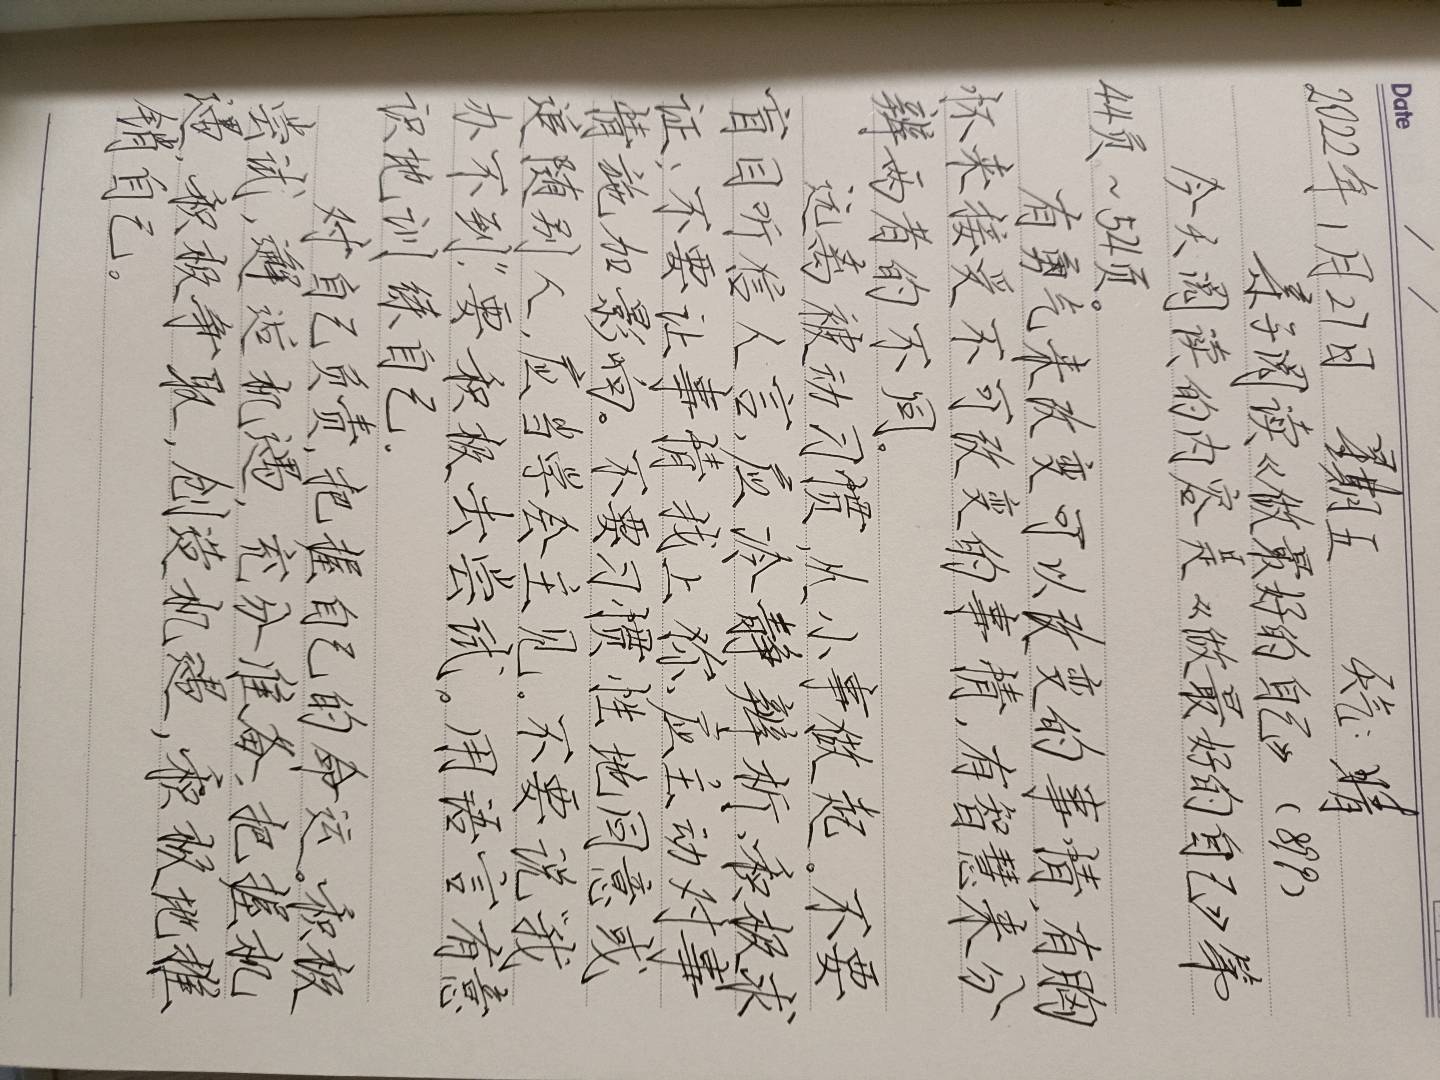 Date
2022年1月27日 星期五 天气:晴
亲子阅读《做最好的自己》(89)
今天阅读的内容是《做最好的自己》第
44页~54页。
有勇气来改变可以改变的事情,有胸
怀来接受不可改变的事情,有智慧来分
辨两者的不同。
远离被动习惯,从小事做起。不要
盲目听信人言,应冷静辨析、积极求
证、不要让事情找上你,应主动对事
情施加影响。不要习惯性地同意或
追随别人,应当学会主见。不要说“我
办不到,”要积极去尝试。用语言有意
识地训练自己.
对自己负责,把握自己的命运。积极
尝试,邂逅机遇,充分准备、把握机
遇,积极争取,创造机遇,积极地推
销自己。